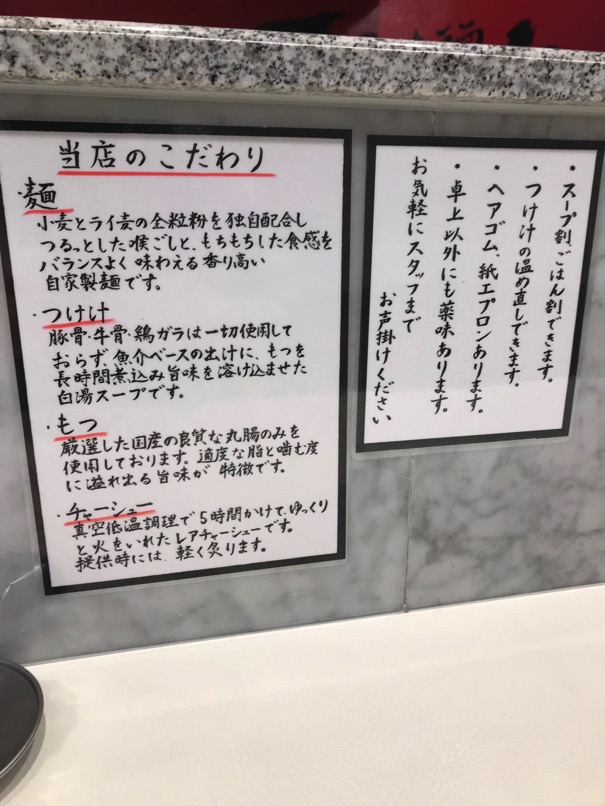 当店のこだわり
・麺
小麦とライ麦の全粒粉を独自配合し
つるっとした喉ごしと、もちもちした食感を
バランスよく味わえる香り高い
自家製麺です。
・つけ汁
豚骨・牛骨・鶏ガラは一切使用して
おらず、魚介ベースの出汁に、もつを
長時間煮込み旨味を溶け込ませた
白湯スープです。
・もつ
厳選した国産の良質な丸腸のみを
使用しております。適度な脂と噛む度
に溢れ出る旨味が特徴です。
・チャーシュー
真空低温調理で5時間かけて、ゆっくり
と火をいれたレアチャーシューです。
提供時には、軽く炙ります。
・スープ割、ごはん割できます。
・つけ汁の温め直しできます。
・ヘアゴム、紙エプロンあります。
・卓上以外にも薬味あります。
お気軽にスタッフまで
お声掛けください